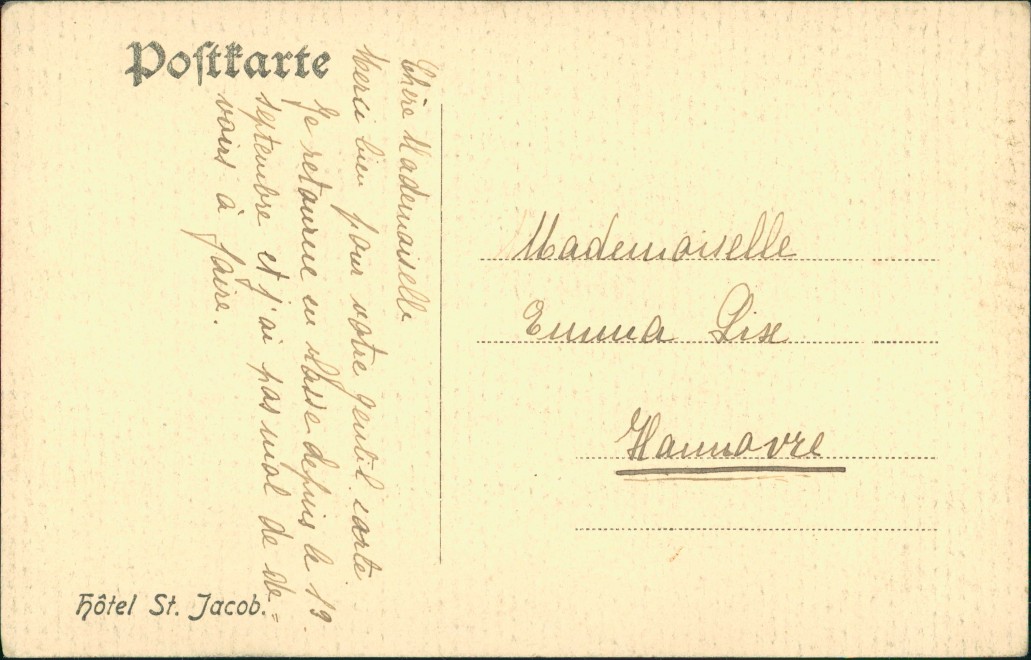 Postkarte
Chère Mademoiselle
Merci bien pour votre gentil carte
Je retourne en classe depuis le 19
septembre et j'ai pas mal de de=
voirs à faire.
Mademoiselle
Emma Lise
Hannovre
Hôtel St. Jacob.